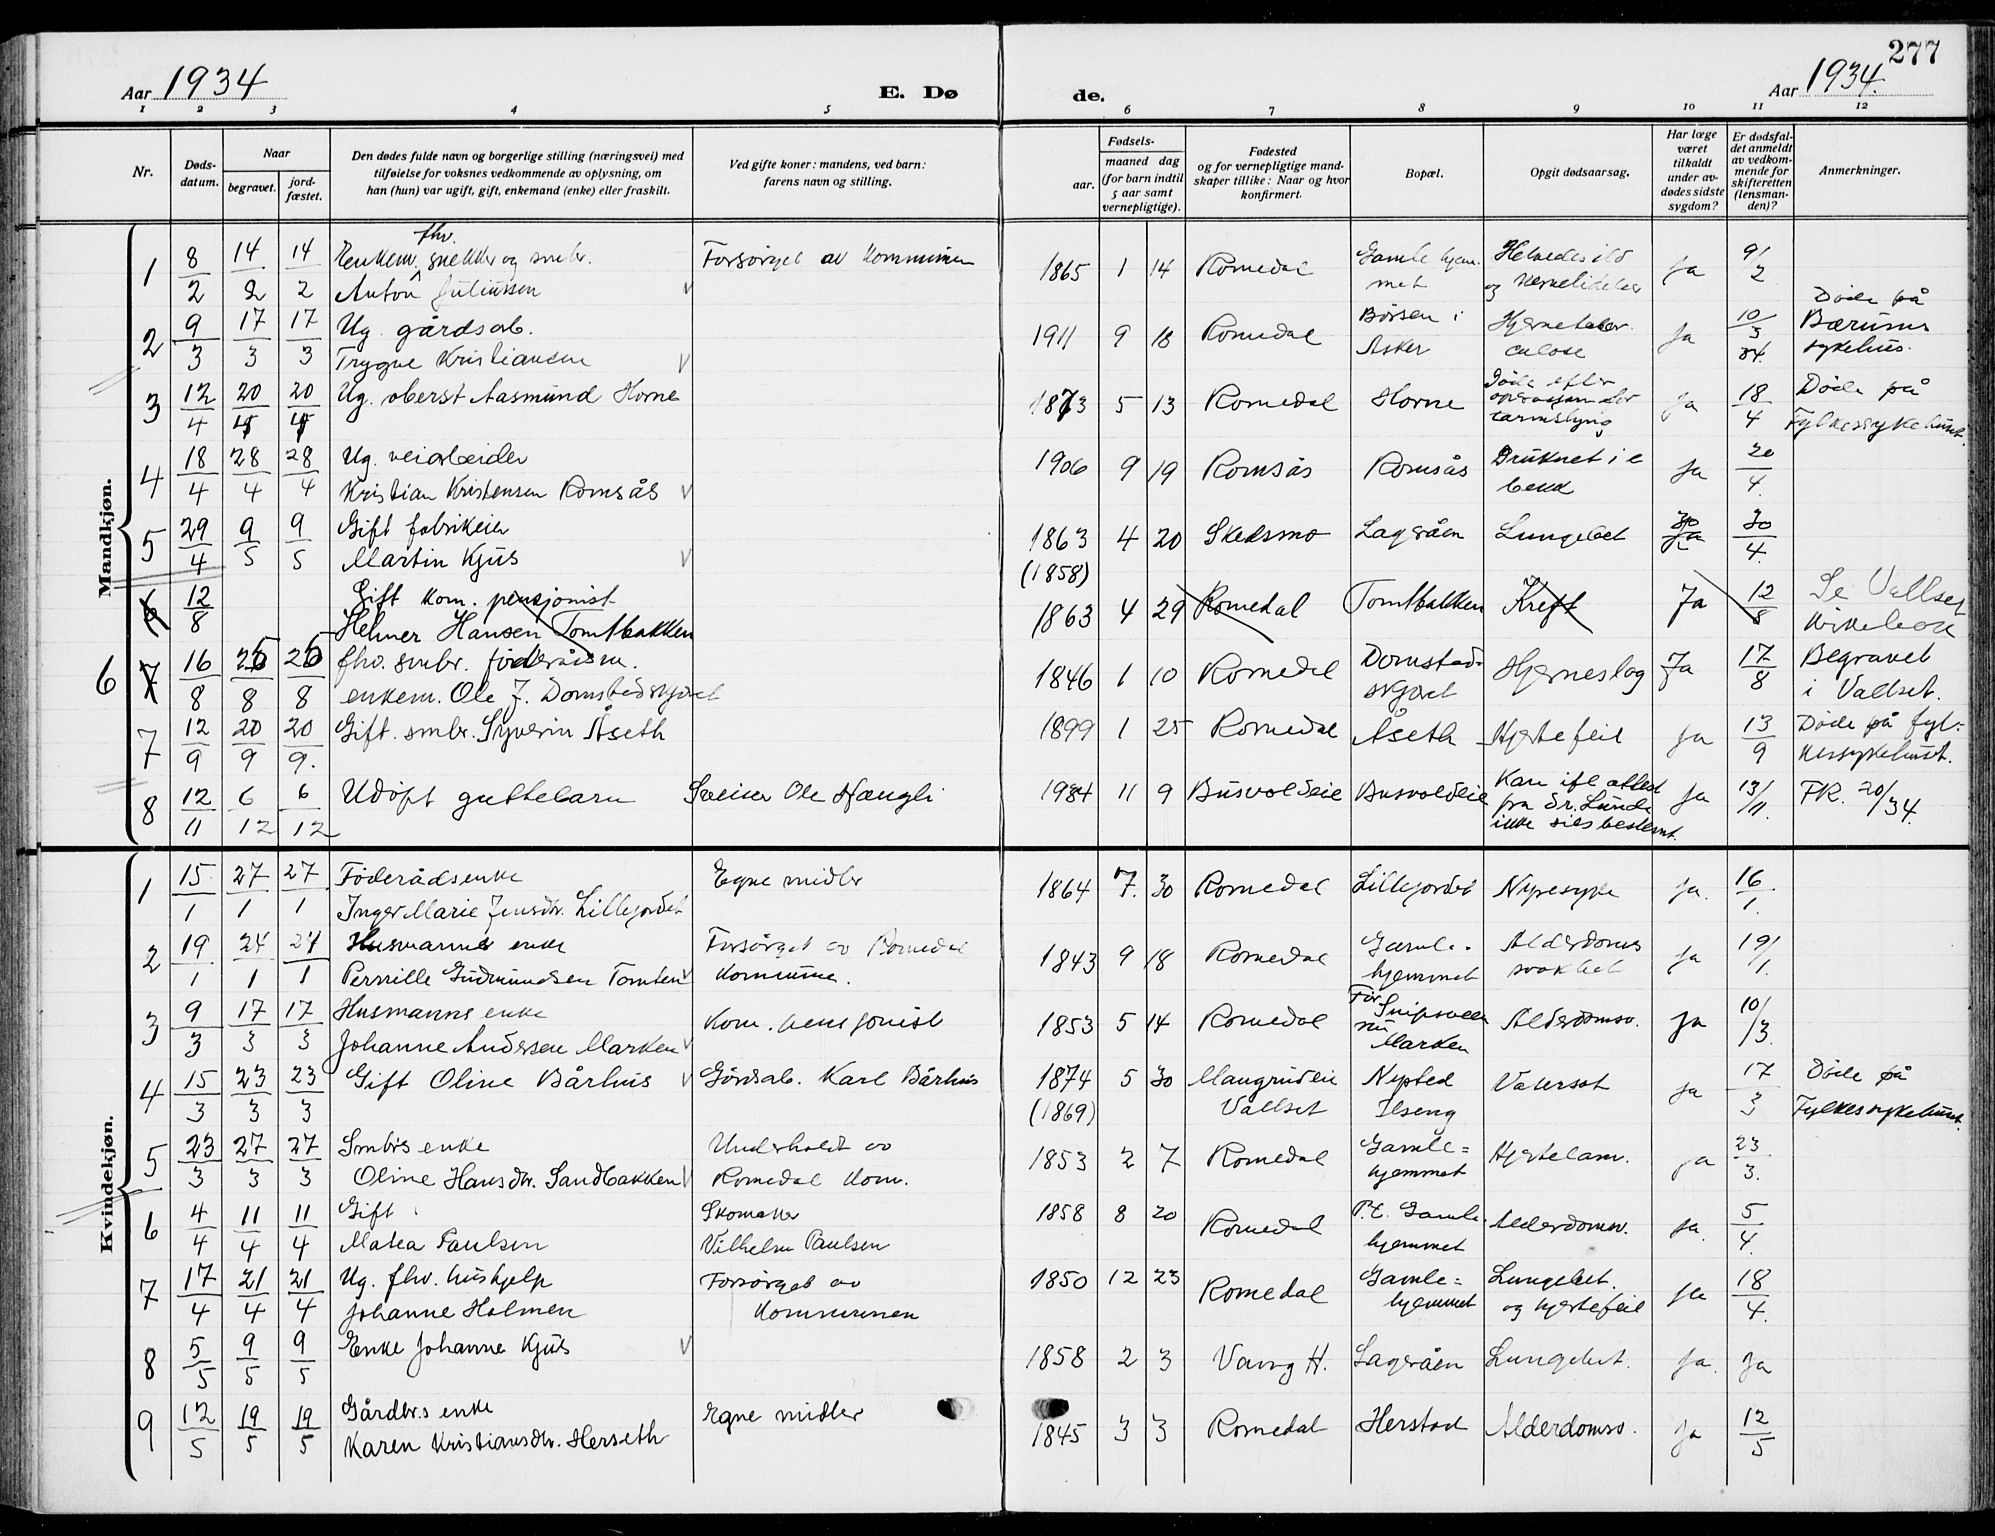 277
Aar 1934
E. Dø
de.
Aar 1934.
1 2 3 4 5 6 7 8 9 10 11 12
Nr.
Døds-
datum.
Naar
begravet.
jord-
fæstet.
Den dødes fulde navn og borgerlige stilling (næringsvei) med
tilføielse for voksnes vedkommende av oplysning, om
han (hun) var ugift, gift, enkemand (enke) eller fraskilt.
Ved gifte koner: mandens, ved barn:
farens navn og stilling.
Fødsels-
aar.
maaned dag
(for barn indtil
5 aar samt
vernepligtige).
Fødested
og for vernepligtige mand-
skaper tillike: Naar og hvor
konfirmert.
Bopæl.
Opgit dødsaarsag.
Har læge
været
tilkaldt
under av-
dødes sidste
sygdom?
Er dødsfal-
det anmeldt
av vedkom-
mende for
skifteretten
(lensman-
den)?
Anmerkninger.
Mandkjøn.
1 8/2 14/2 14/2 Enkem. fhv. snekker og smbr. Forsörget av kommunen 1865 1 14 Romedal Gamle hjem- Helvedesild Ja 9/2
Anton Juliussen met og
2 9/3 17/3 17/3 Ug. gårdsarb. 1911 9 18 Romedal Börsen i Hjernetuber- Ja 10/3 34. Döde på
Trygve Kristiansen Asker culose Bærums
sykehus.
3 12/4 20/4 20/4 Ug. oberst Aasmund Horne 1873 5 13 Romedal Horne Döde efter Ja 18/4 Döde på
operasjon for
tarmslyng Fylkessykehuset
4 18/4 28/4 28/4 Ug. veiarbeider 1906 9 19 Romsås Romsås Druknet i e Ja 20/4.
Kristian Kristensen Romsås
5 29/4 9/5 9/5 Gift fabrikeier 1863 4 20 Skedsmo Lageråen Lungebet Ja 30/4.
Martin Kjus (1858)
6 12/8 Gift kom. pensjonist 1863 4 29 Romedal Tomtbakken Kreft Ja 12/8 Se Vallset
Helmer Hansen Tomtbakken kirkebok
6 7 16/8 25/8 25/8 fhv. smbr. föderådsm. 1846 1 10 Romedal Domstad- Hjerneslag Ja 17/8 Begravet
enkem. Ole J. i Vallset.
7 12/9 20/9 20/9. Gift. smbr. Syverin Åseth 1899 1 25 Romedal Åseth Hjertefeil Ja 13/9 Döde på fyl-
kessykehuset.
8 12/11 6/12 6/12 Udöpt guttebarn Sveiser Ole Hængli 1934 11 9 Busvoldeie Busvoldeie Kan ifl. attest Ja 13/11. PR. 20/34.
fra dr. Lunde
ikke sies bestemt.
Kvindekjøn.
1 15/1 27/1 27/1 Föderådsenke Egne midler 1864 7. 30 Romedal Lillejordet Nyresyke Ja. 16/1.
Inger Marie Jensdtr. Lillejordet
2 19/1 24/1 24/1 Husmanns enke Forsörget av Romedal 1843 9 18 Romedal Gamle- Alderdoms Ja 19/1.
Pernille Gudmundsen Tomten kommune. hjemmet svakhet
3 9/3 17/3 17/3 Husmanns enke Kom. pensjonist 1853 5 14 Romedal För Alderdomsv. Ja 10/3.
Johanne Andersen Marken nu Marken
4 15/3 23/3 23/3 Gift Oline Bårhus Gårdsarb. Karl Bårhus 1874 5 30 Mangrudeie Nysted Vatersot Ja 17/3 Döde på
(1869) Vallset Ilseng Fylkessykehuset.
5 23/3 27/3 27/3 Smbrs enke Underholdt av 1853 2 7 Romedal Gamle= Hjertelam. Ja 23/3.
Oline Hansdtr. Sandbakken Romedal kom. hjemmet
6 4/4 11/4 11/4 Gift Skomaker 1858 8 20 Romedal P.t. Gamle- Alderdomsv. Ja. 5/4.
Matea Paulsen Vilhelm Paulsen hjemmet
7 17/4 21/4 21/4 Ug. fhv. hushjelp Forsörget av 1850 12 23 Romedal Gamle= Lungebet. Ja 18/4.
Johanne Holmen Kommunen hjemmet og hjertefeil
8 5/5 9/5 9/5 Enke Johanne Kjus 1858 2 3 Vang H. Lageråen Lungebet. Ja. Ja
9 12/5 19/5 19/5 Gårdbr.s enke Egne midler 1845 3 3 Romedal Herstad Alderdomsv. Ja 12/5
Karen Kristiansdtr. Herseth